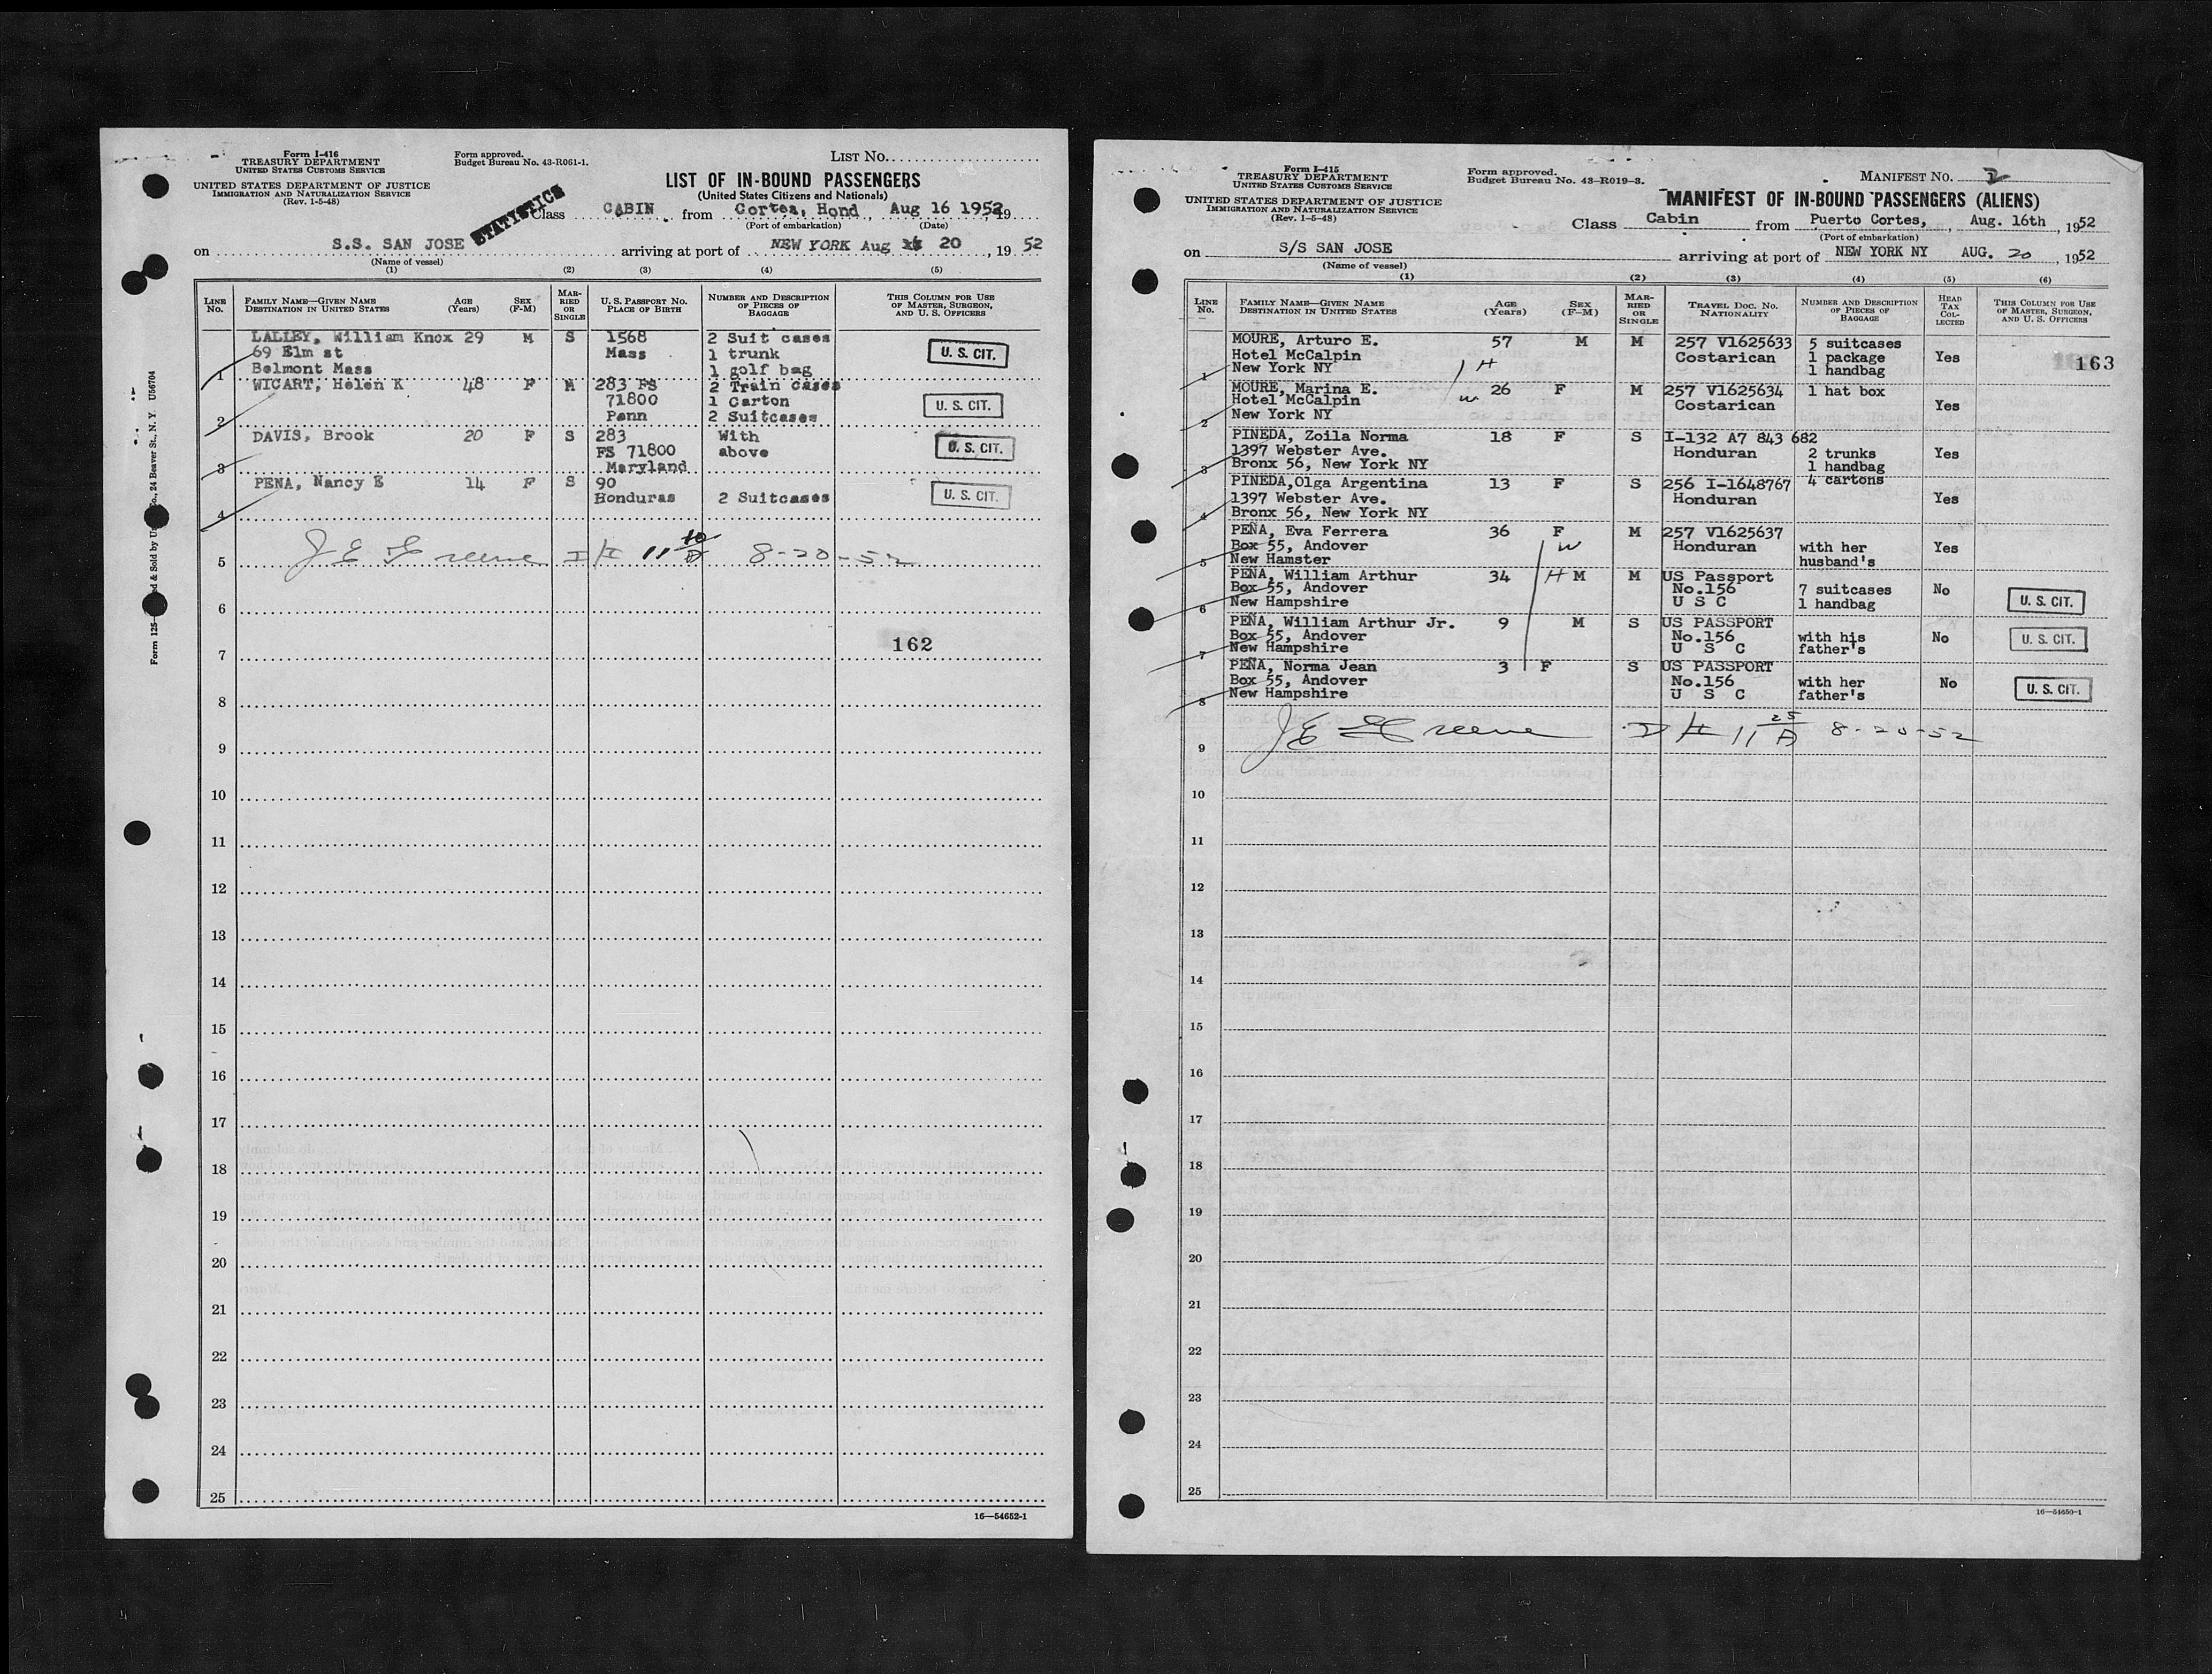 Form I-416
TREASURY DEPARTMENT
UNITED STATES CUSTOMS SERVICE
UNITED STATES DEPARTMENT OF JUSTICE
IMMIGRATION AND NATURALIZATION SERVICE
(Rev. 1-5-48)
Form approved.
Budget Bureau No. 43-R061-1.
LIST No.
LIST OF IN-BOUND PASSENGERS
(United States Citizens and Nationals)
STATISTICS
Class CABIN from Cortea, Hond, Aug 16 1952, 19
(Port of embarkation) (Date)
on S.S. SAN JOSE arriving at port of NEW YORK Aug 20, 19 52
(Name of vessel)
(1) (2) (3) (4) (5)
LINE No. FAMILY NAME—GIVEN NAME DESTINATION IN UNITED STATES AGE (Years) SEX (F-M) MARRIED OR SINGLE U. S. PASSPORT No. PLACE OF BIRTH NUMBER AND DESCRIPTION OF PIECES OF BAGGAGE THIS COLUMN FOR USE OF MASTER, SURGEON, AND U. S. OFFICERS
LALLEY, William Knox 29 M S 1568 2 Suit cases
69 Elm st Mass 1 trunk U. S. CIT.
1 Belmont Mass 1 golf bag
WICART, Helen K 48 F M 283 FS 2 Train cases
71800 1 Carton U. S. CIT.
2 Penn 2 Suitcases
DAVIS, Brook 20 F S 283 With
FS 71800 above U. S. CIT.
3 Maryland
PENA, Nancy E 14 F S 90
Honduras 2 Suitcases U. S. CIT.
4
5 J E Greene 11 10/A 8-20-52
6
7 162
8
9
10
11
12
13
14
15
16
17
18
19
20
21
22
23
24
25
16—54652-1
Form I-415
TREASURY DEPARTMENT
UNITED STATES CUSTOMS SERVICE
UNITED STATES DEPARTMENT OF JUSTICE
IMMIGRATION AND NATURALIZATION SERVICE
(Rev. 1-5-48)
Form approved.
Budget Bureau No. 43-R019-3.
MANIFEST No. 2
MANIFEST OF IN-BOUND PASSENGERS (ALIENS)
Class Cabin from Puerto Cortes, Aug. 16th, 1952
(Port of embarkation)
on S/S SAN JOSE arriving at port of NEW YORK NY AUG. 20, 1952
(Name of vessel)
(1) (2) (3) (4) (5) (6)
LINE No. FAMILY NAME—GIVEN NAME DESTINATION IN UNITED STATES AGE (Years) SEX (F-M) MARRIED OR SINGLE TRAVEL DOC. No. NATIONALITY NUMBER AND DESCRIPTION OF PIECES OF BAGGAGE HEAD TAX COLLECTED THIS COLUMN FOR USE OF MASTER, SURGEON, AND U. S. OFFICERS
MOURE, Arturo E. 57 M M 257 V1625633 5 suitcases
Hotel McCalpin Costarican 1 package Yes 163
1 New York NY H 1 handbag
MOURE, Marina E. 26 F M 257 V1625634 1 hat box
Hotel McCalpin W Costarican Yes
2 New York NY
PINEDA, Zoila Norma 18 F S I-132 A7 843 682
1397 Webster Ave. Honduran 2 trunks Yes
3 Bronx 56, New York NY 1 handbag
PINEDA,Olga Argentina 13 F S 256 I-1648767 4 cartons
1397 Webster Ave. Honduran Yes
4 Bronx 56, New York NY
PEÑA, Eva Ferrera 36 F M 257 V1625637
Box 55, Andover W Honduran with her Yes
5 New Hamster husband's
PEÑA, William Arthur 34 H M M US Passport
Box 55, Andover No.156 7 suitcases No
6 New Hampshire U S C 1 handbag U. S. CIT.
PEÑA, William Arthur Jr. 9 M S US PASSPORT
Box 55, Andover No.156 with his No U. S. CIT.
7 New Hampshire U S C father's
PEÑA, Norma Jean 3 F S US PASSPORT
Box 55, Andover No.156 with her No U. S. CIT.
8 New Hampshire U S C father's
9 J E Greene 11 25/A 8-20-52
10
11
12
13
14
15
16
17
18
19
20
21
22
23
24
25
16—54650-1